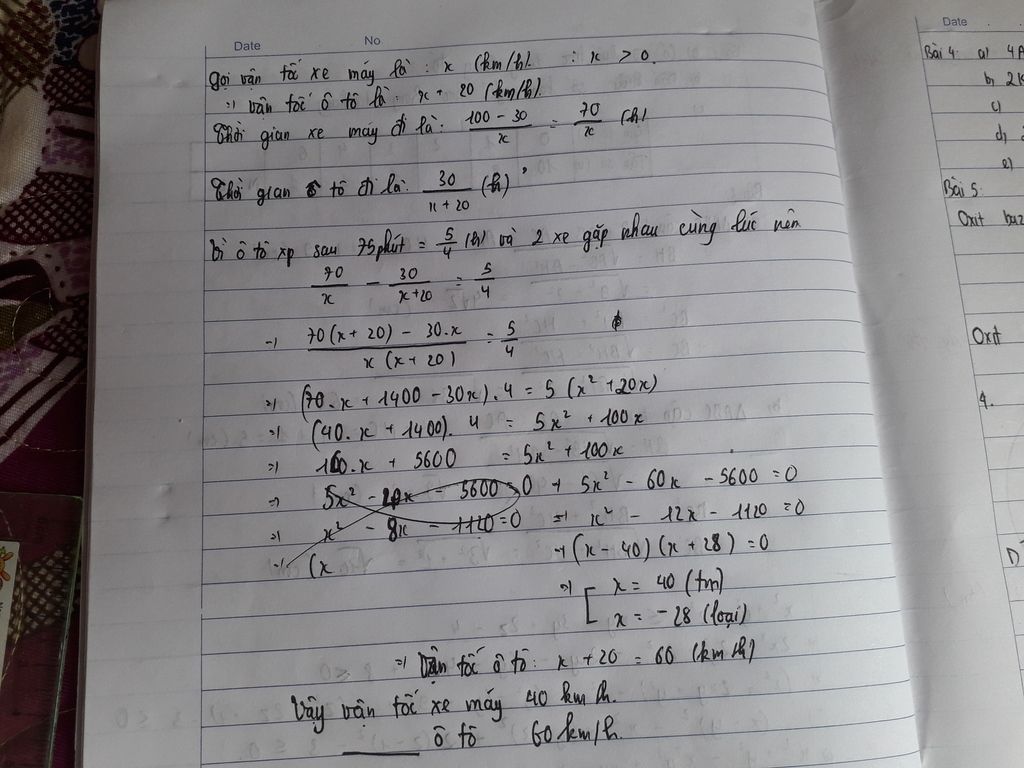 Date No
Gọi vận tốc xe máy là : x (km/h) : x > 0.
=> vân tốc ô tô là : x + 20 (km/h)
Thời gian xe máy đi là: (100 - 30)/x = 70/x (h)
Thời gian ô tô đi là: 30/(x+20) (h)
Vì ô tô xp sau 75 phút = 5/4 (h) và 2 xe gặp nhau cùng lúc nên
70/x - 30/(x+20) = 5/4
=> (70(x+20) - 30.x)/(x(x+20)) = 5/4
=> (70.x + 1400 - 30x).4 = 5(x² + 20x)
=> (40.x + 1400).4 = 5x² + 100x
=> 160.x + 5600 = 5x² + 100x
=> 5x² - x - 5600 = 0 + 5x² - 60x - 5600 = 0
=> x² - 8x - 1120 = 0 => x² - 12x - 1120 = 0
=> (x → (x - 40)(x + 28) = 0
=> [ x = 40 (tm)
x = -28 (loại)
=> Vận tốc ô tô: x + 20 = 60 (km/h)
Vậy vân tốc xe máy 40 km/h.
ô tô 60 km/h.
Date
Bài 4: a)
b) 2
c)
d)
e)
Bài 5:
Oxit
Oxit
4.